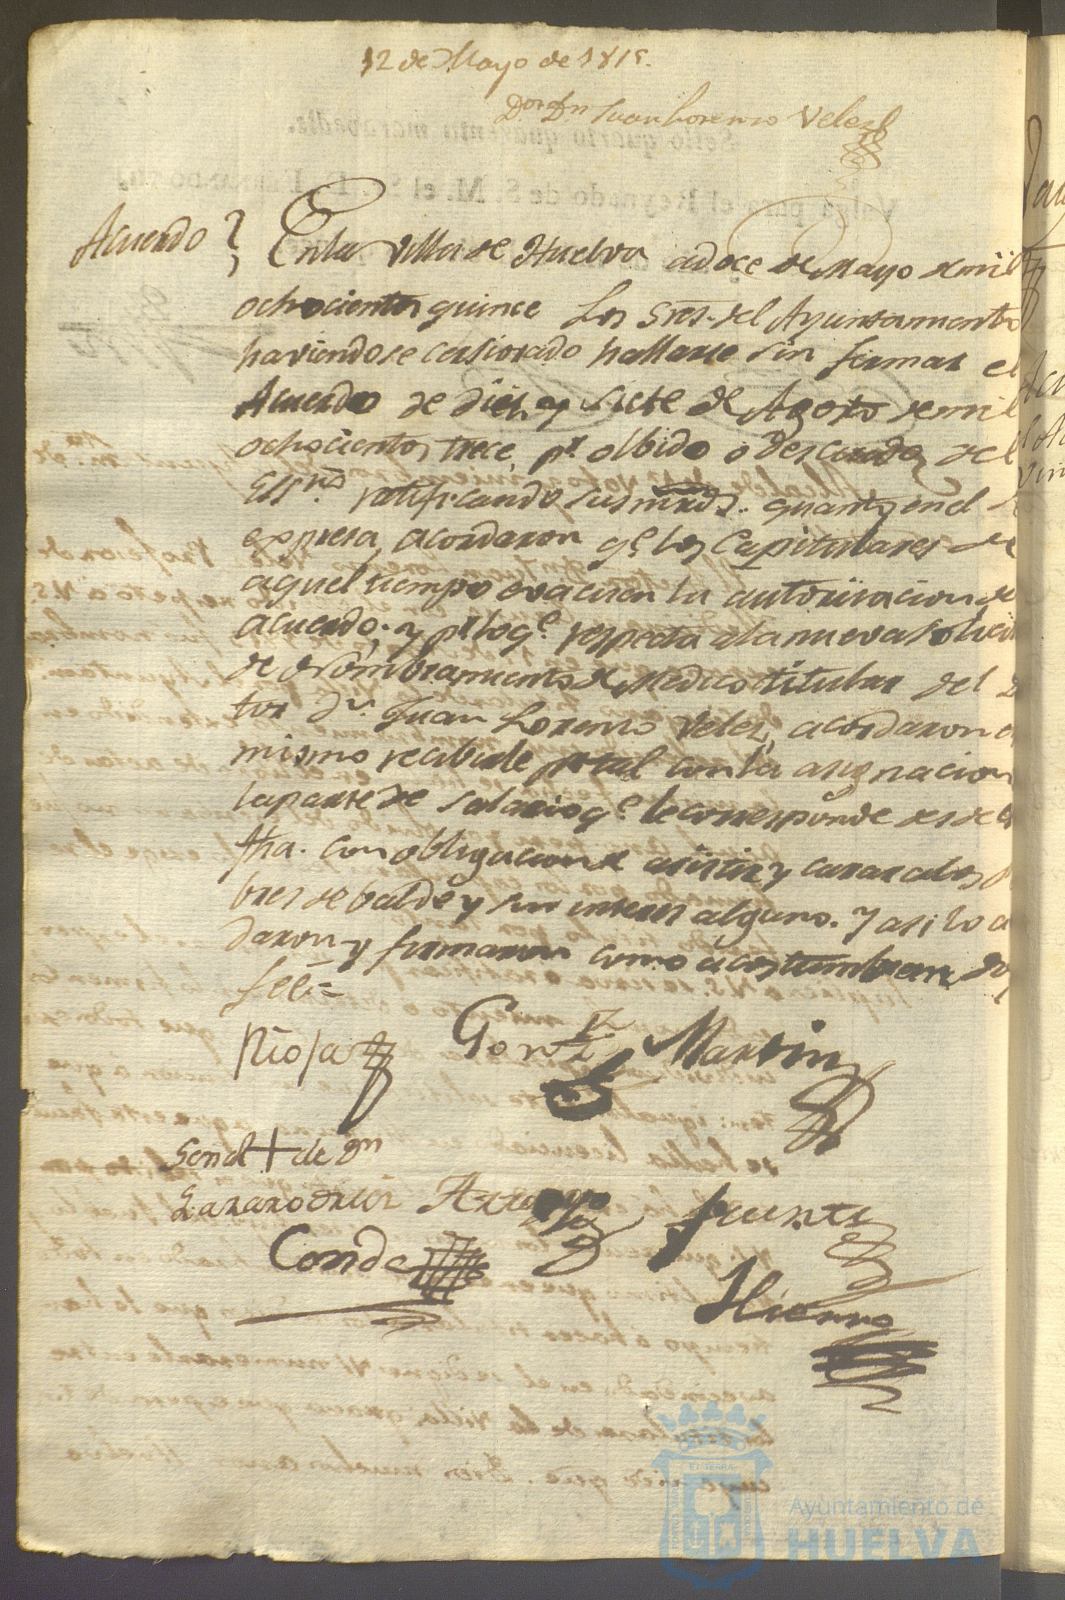 12 de Mayo de 1815.
Dor. Dn. Juan Lorenzo Velez
Acuerdo
En la Villa de Huelva a doce de Mayo de mil
ochocientos quince Los Sres. del Ayuntamiento
haviendose cersiorado hallarse sin firmar el
Acuerdo de diez y siete de Agosto de mil
ochocientos trece, pr. olbido o descuido del
Essno. ratificando sus mrds. quanto en el
expresa, acordaron qe. los Capitulares de
aquel tiempo evacuen la autorizacion de
acuerdo; y pr. lo qe. respecta a la nueva solicit
de nombramiento de Medico titular del D
tor Dn. Juan Lorenzo Velez, acordaron
mismo recibirle pr. tal con la asignacion
la parte de salario qe. le corresponde desde
fha. con obligacion de asistir y curar a los
bres de balde y sin interes alguno. Y asi lo a
daron y firmaron como acostumbran, doy
feé=
Rioja
Gonz. Martin
Señal + de Dn
Lazaro Ortiz
Puente
Conde
Hierro
Ayuntamiento de
HUELVA